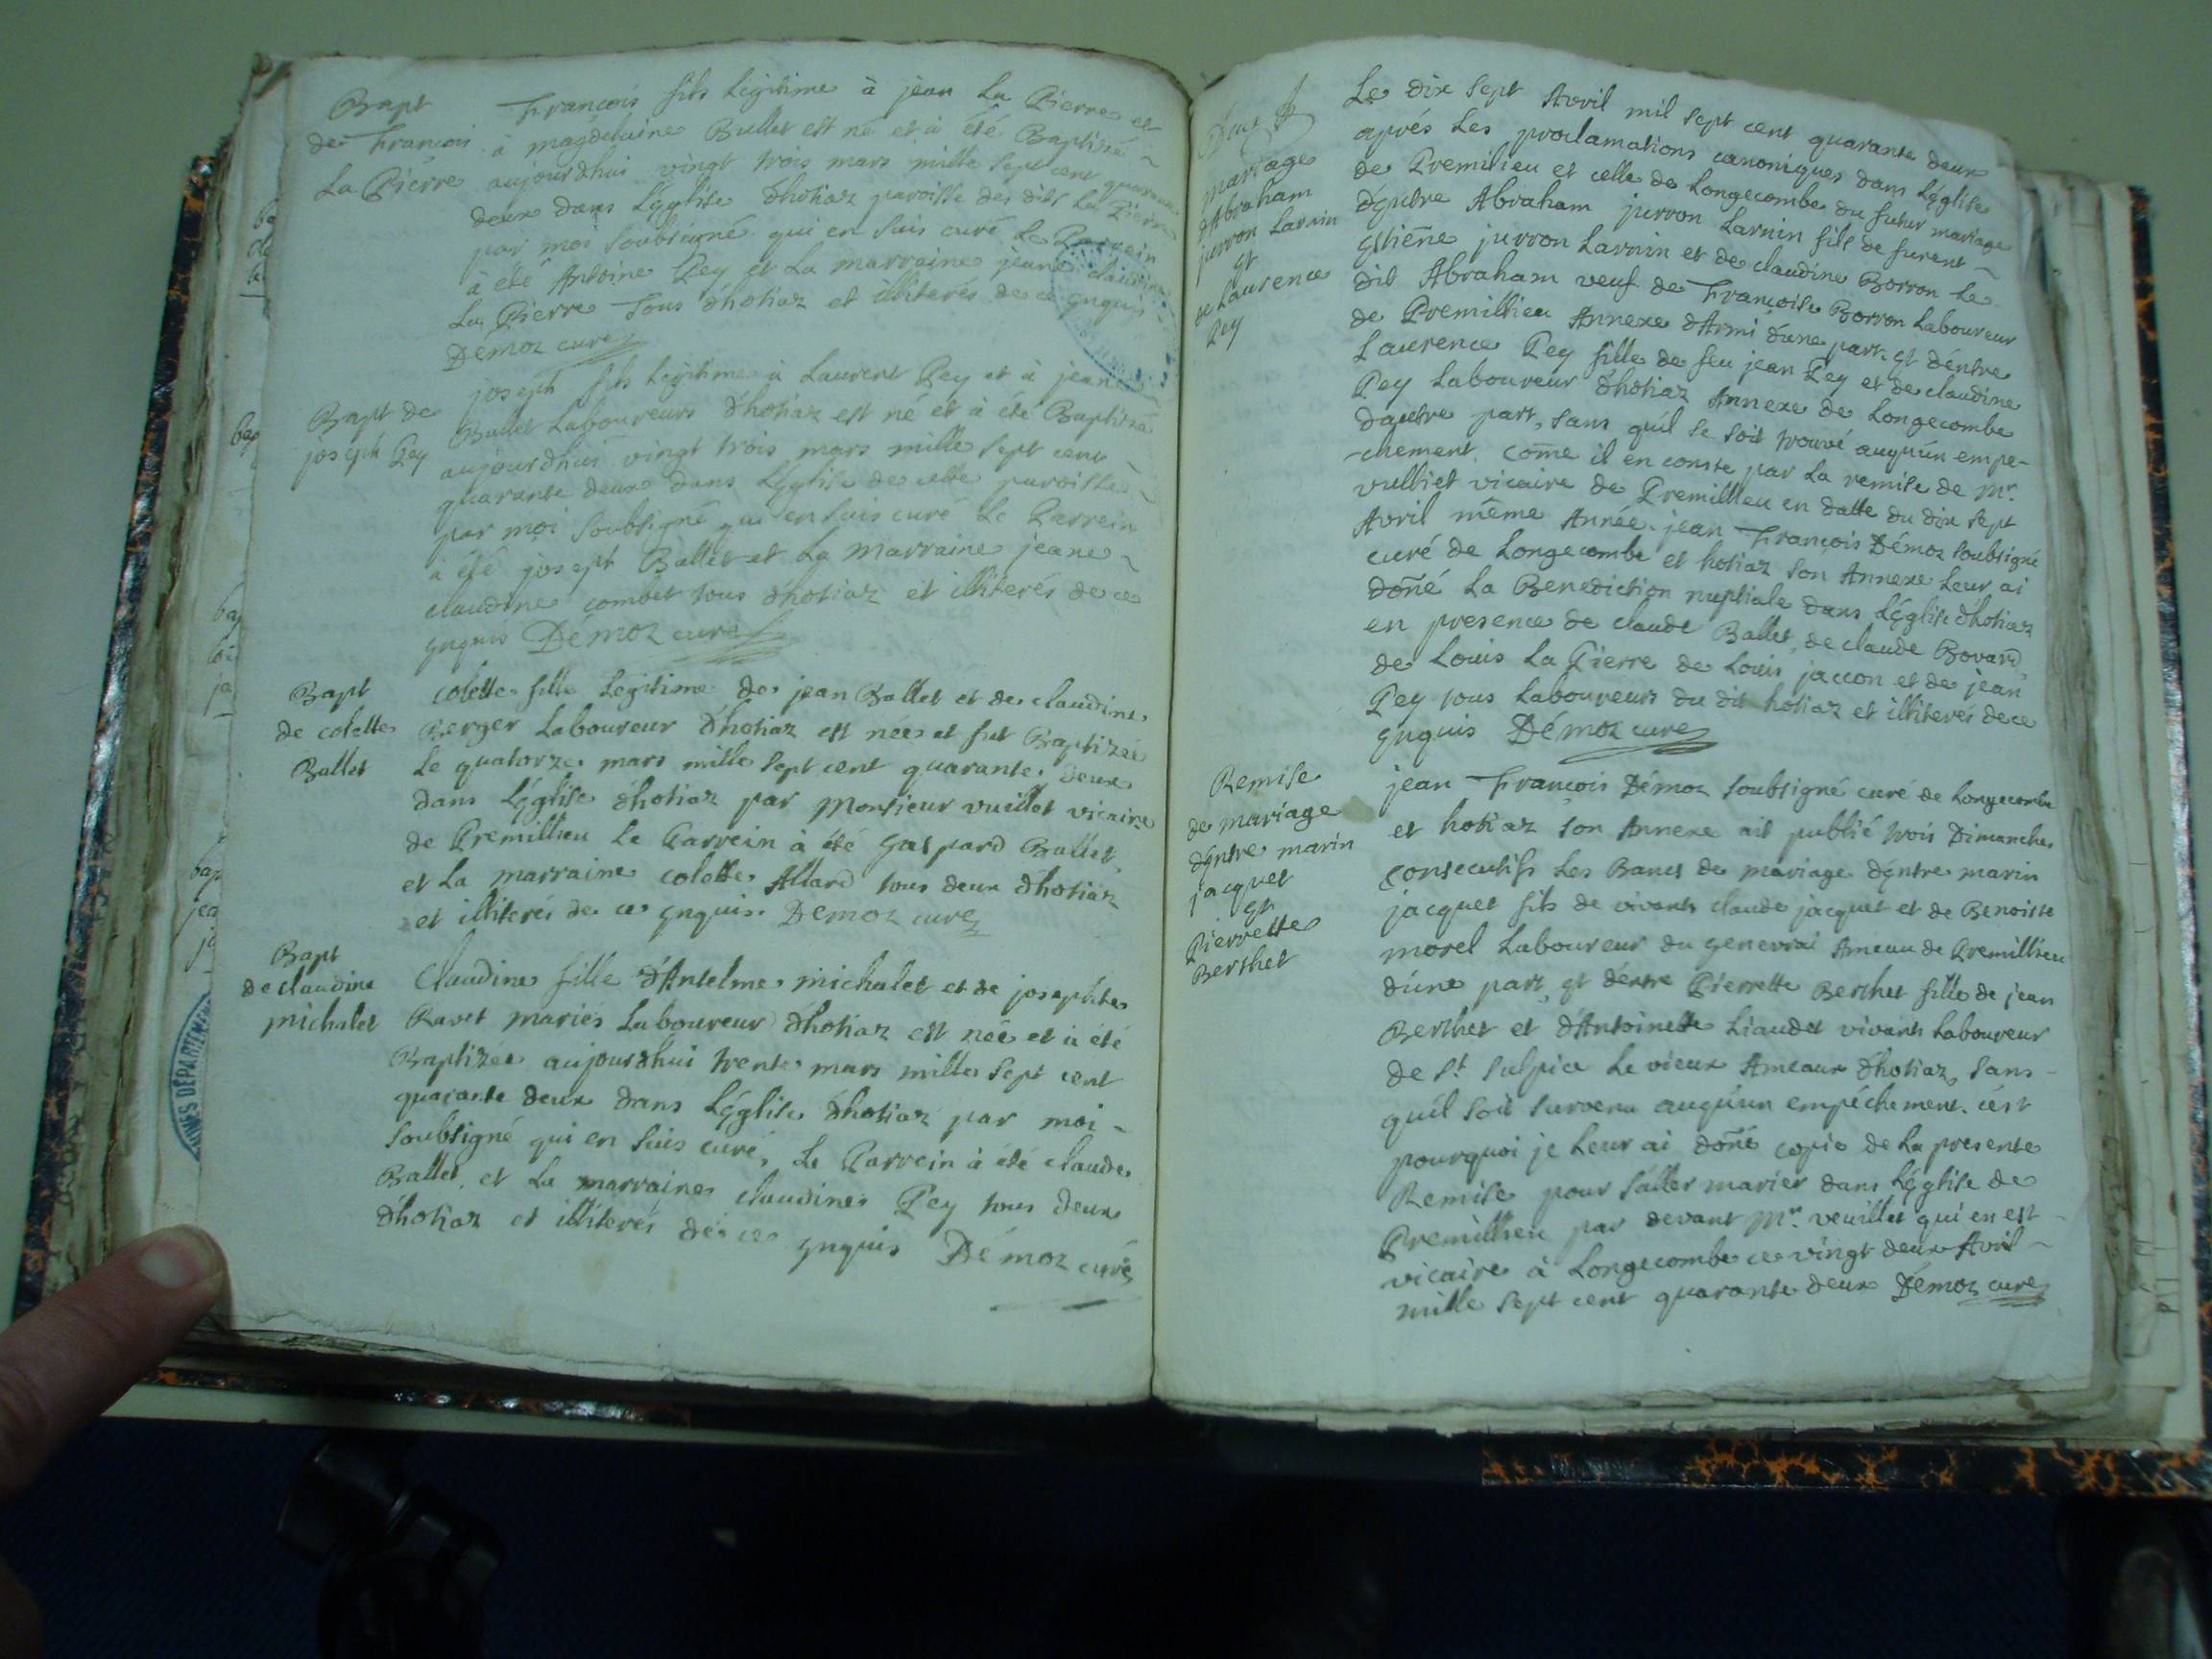 Bapt
de Francois
La Pierre
Francois fils Legitime à jean La Pierre et
à magdelaine Ballet est né et à été Baptisé
aujourdhuy vingt trois mars mille sept cent quarante
deux dans Léglise dhotiaz paroisse des dits La Pierre
par moi soubsigné qui en suis curé Le Parrein
à été Antoine Pey et La marraine jeane claudine
La Pierre Tous dhotiaz et illiterés de ce enquis
Démoz curé
Bapt de
joseph Pey
joseph fils Legitime à Laurent Pey et à jeane
Ballet Laboureurs dhotiaz est né et à été Baptisé
aujourdhui vingt trois mars mille sept cent
quarante deux dans Léglise de cette paroisse
par moi soubsigné qui en suis curé Le Parrein
à été joseph Ballet et La marraine jeane
claudine combet tous dhotiaz et illiterés de ce
enquis Démoz curé
Bapt
de colette
Ballet
colette fille Legitime de jean Ballet et de claudine
Berger Laboureur dhotiaz est née et fut Baptizée
Le quatorze mars mille sept cent quarante deux
dans Léglise dhotiaz par Monsieur vuillet vicaire
de Premillieu Le Parrein à été gaspard Ballet
et La marraine colette Allard tous deux dhotiaz
et illiterés de ce enquis. Demoz curé
Bapt
de claudine
michalet
Claudine fille d'Antelme michalet et de josephte
Ravet mariés Laboureur dhotiaz est née et à été
Baptizée aujourdhui trente mars mille sept cent
quarante deux dans Léglise dhotiaz par moi
soubsigné qui en suis curé, Le Parrein à été claude
Ballet, et La marraine claudine Pey tous deux
dhotiaz et illiterés de ce enquis Démoz curé
mariage
d'Abraham
jurron Larnin
et
de Laurence
Pey
Le dix sept Avril mil sept cent quarante deux
aprés Les proclamations canoniques dans Léglise
de Premilieu et celle de Longecombe du futur mariage
d'entre Abraham jurron Larnin fils de furent
Etiene jurron Larnin et de claudine Borron Le
dit Abraham veuf de Françoise Borron Laboureur
de Premillieu Annexe d'Armi d'une part, et d'entre
Laurence Pey fille de feu jean Pey et de claudine
Pey Laboureur dhotiaz Annexe de Longecombe
dautre part, sans qu'il se soit trouvé auqu'un empe-
-chement, come il en conste par La remise de Mr.
vulliet vicaire de Premillieu en datte du dix sept
Avril même Année. jean François Démoz soubsigné
curé de Longecombe et hotiaz son Annexe Leur ai
doñé La Benediction nuptiale dans Léglise dhotiaz
en presence de claude Ballet, de claude Bovard,
de Louis La Pierre de Louis jaccon et de jean
Pey tous Laboureurs du dit hotiaz et illiterés de ce
enquis Démoz curé
Remise
de mariage
d'entre marin
jacquet
et
Pierrette
Berthet
jean François Démoz soubsigné curé de Longecombe
et hotiaz son Annexe ait publié trois Dimanches
consecutifs Les Bancs de mariage d'entre marin
jacquet fils de vivants claude jacquet et de Benoiste
morel Laboureur du genevrai Ameau de Premillieu
d'une part, et d'entre Pierrette Berthet fille de jean
Berthet et d'Antoinette Liaudet vivants Laboureur
de St. Sulpice Le vieux Ameaux dhotiaz, sans
qu'il soit survenu auqu'un empéchement. c'est
pourquoi je Leur ai doñé copie de La presente
Remise pour s'aller marier dans Léglise de
Premillieu par devant Mr. veuillet qui en est
vicaire à Longecombe ce vingt deux Avril
mille sept cent quarante deux Démoz curé